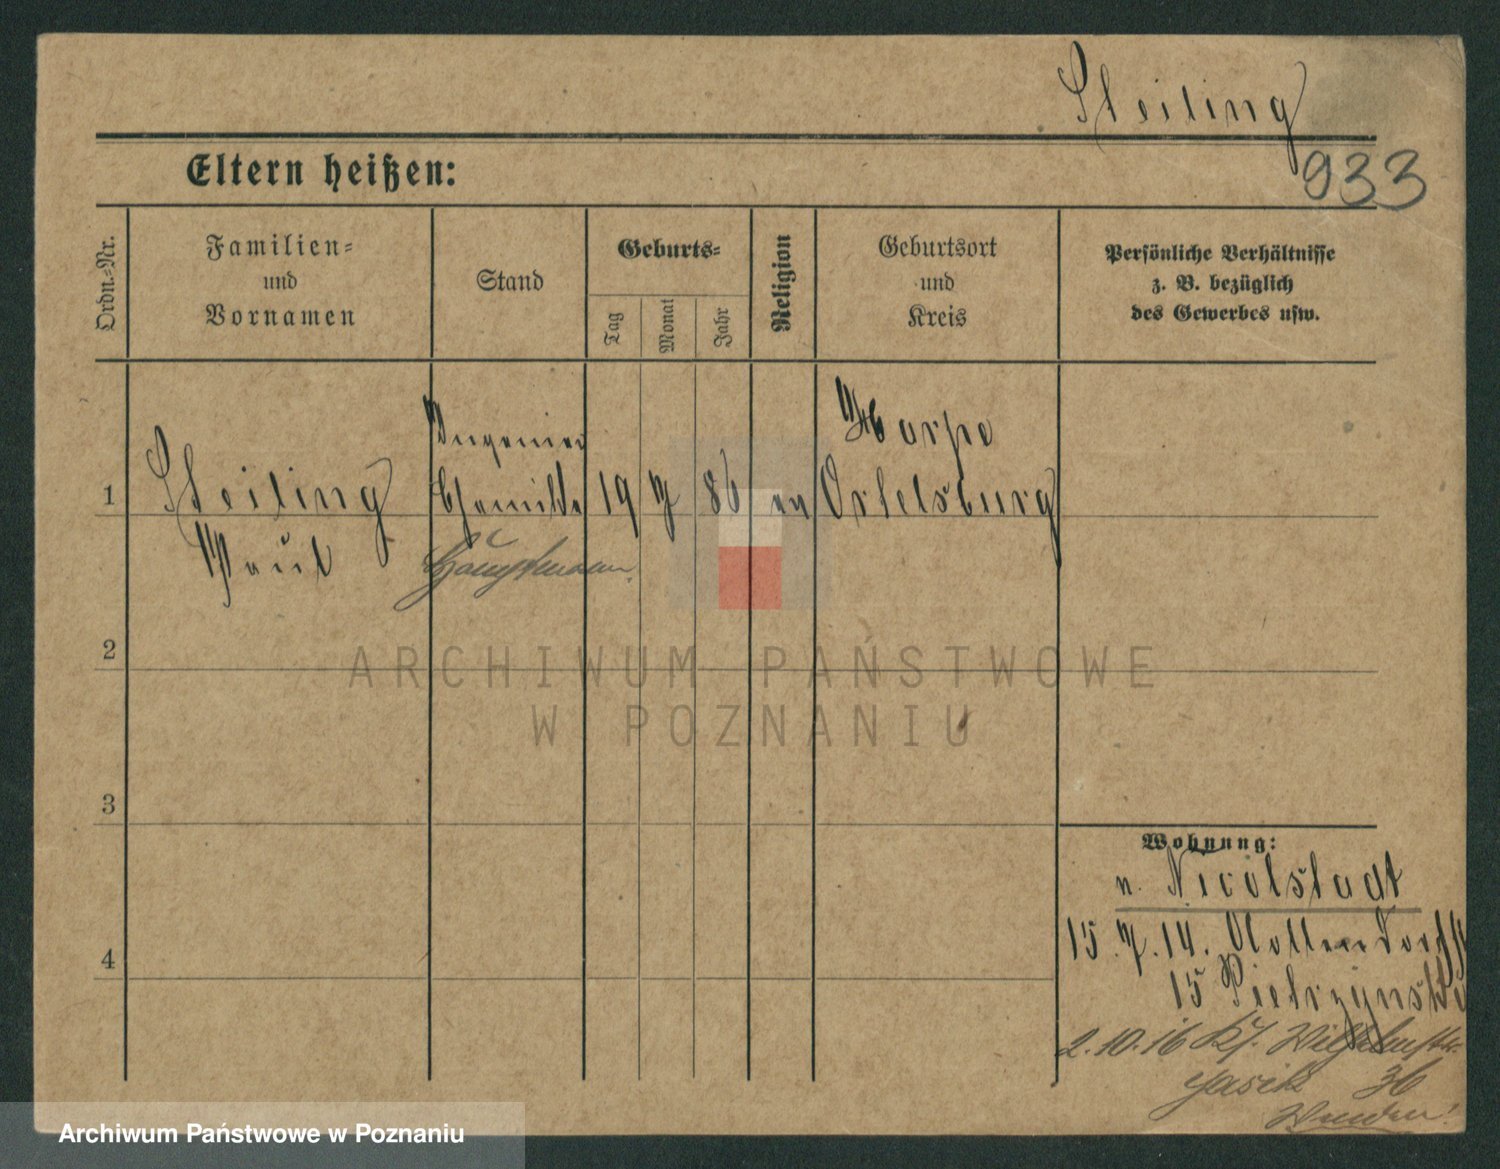 Steiling
933
Eltern heißen:
Ordn.-Nr.
Familien-
und
Vornamen
Stand
Geburts-
Tag
Monat
Jahr
Religion
Geburtsort
und
Kreis
Persönliche Verhältnisse
z. B. bezüglich
des Gewerbes usw.
1
Steiling
Paul
Ingenieur
Chemiker
Hauptmann
19 7 86 ev
Ortelsburg
2
3
4
ARCHIWUM PAŃSTWOWE
W POZNANIU
Wohnung:
n. Nicolstadt
15.7.14.
15 Pietrzynski
2.10.16 Kf. Wilhelmstr.
36
Wenden!
Archiwum Państwowe w Poznaniu